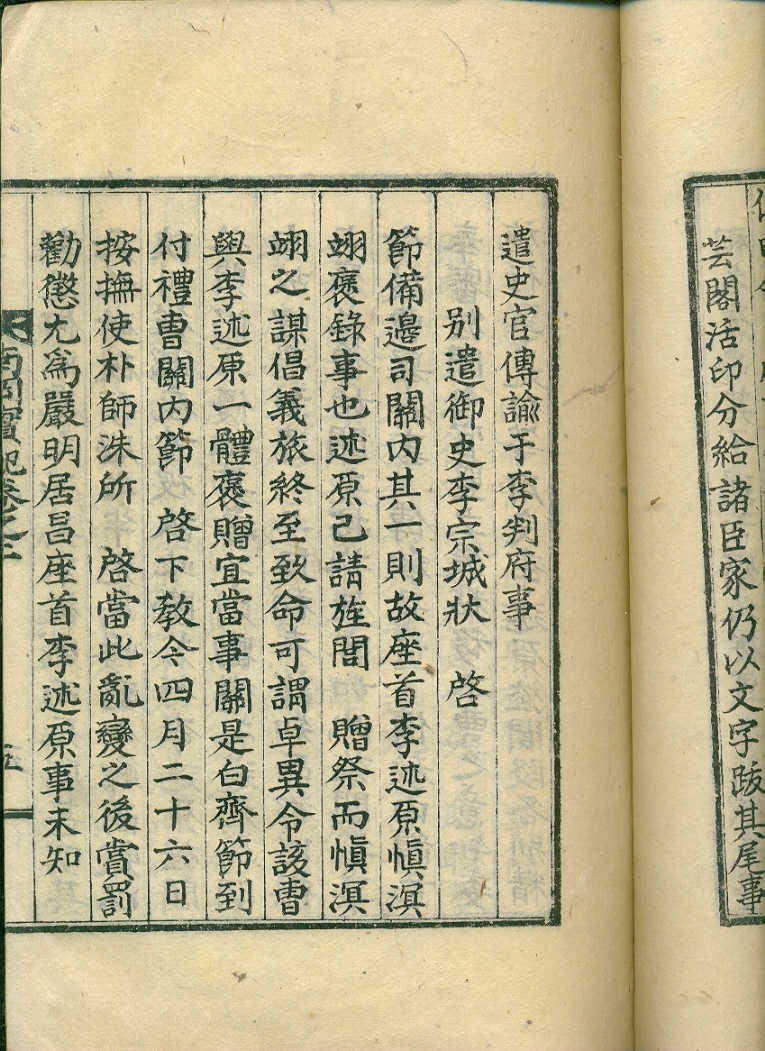 芸閣活印分給諸臣家仍以文字跋其尾事
遣史官傳諭于李判府事
別遣御史李宗城狀 啓
節備邊司關內其一則故座首李述原愼溟
翊褒錄事也述原已請旌閭 贈祭而愼溟
翊之謀倡義旅終至致命可謂卓異令該曹
與李述原一體褒贈宜當事關是白齊節到
付禮曹關內節 啓下敎今四月二十六日
按撫使朴師洙所 啓當此亂變之後賞罰
勸懲尤爲嚴明居昌座首李述原事未知